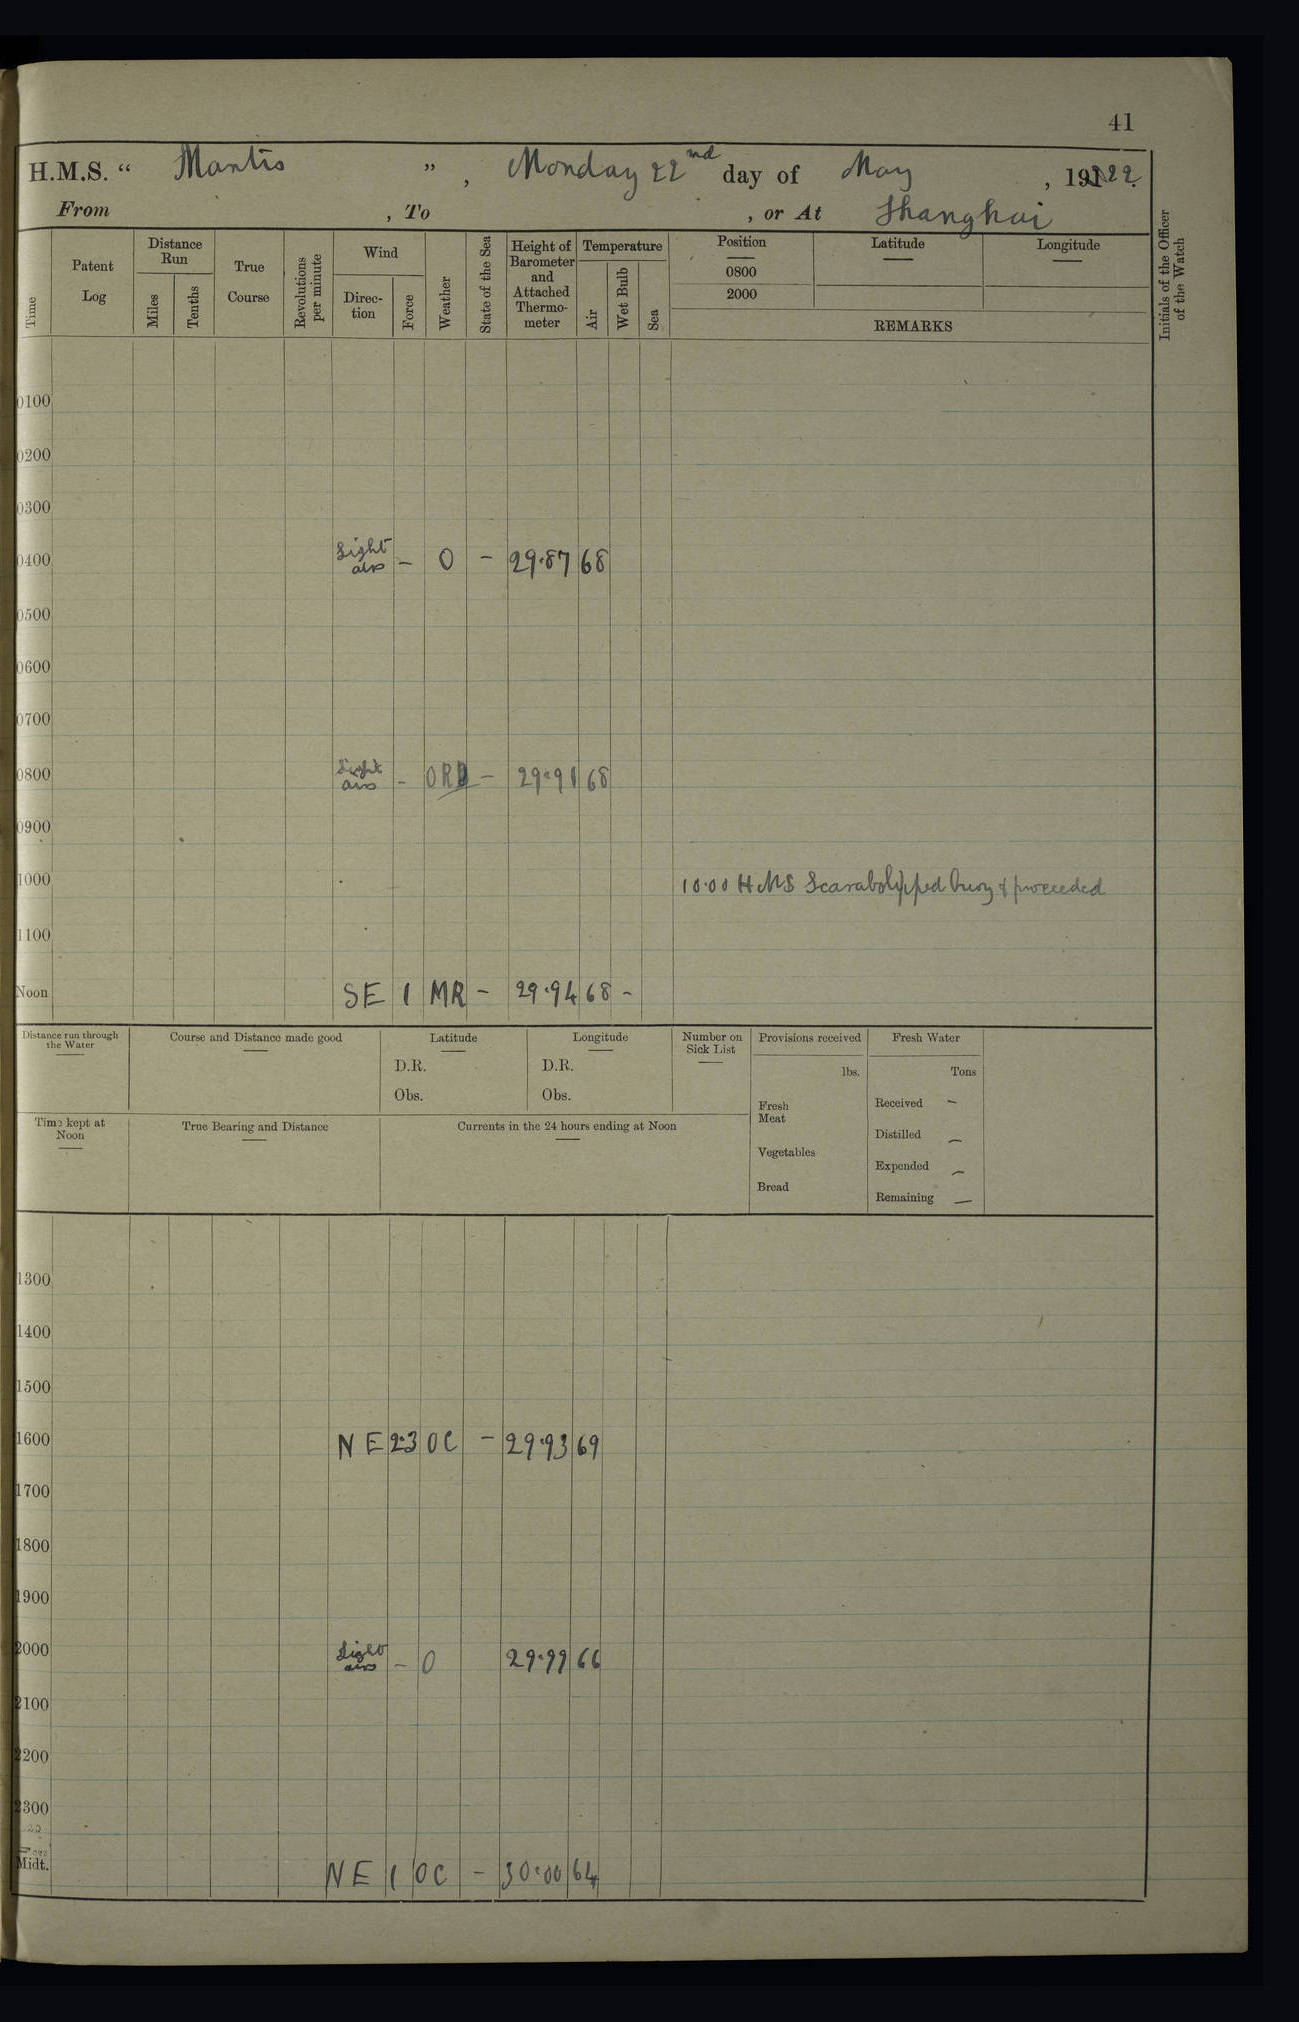 41
H.M.S. “ Mantis ” , Monday 22nd day of May , 1922.
From , To , or At Shanghai
Time
Patent Log
Distance Run
Miles
Tenths
True Course
Revolutions per minute
Wind
Direc-tion
Force
Weather
State of the Sea
Height of Barometer and Attached Thermo-meter
Temperature
Air
Wet Bulb
Sea
Position
0800
2000
Latitude
Longitude
REMARKS
Initials of the Officer of the Watch
0100
0200
0300
0400 Light airs – O – 29.87 68
0500
0600
0700
0800 Light airs – OR – 29.91 68
0900
1000 10.00 HMS Scarab slipped buoy & proceeded
1100
Noon SE 1 MR – 29.94 68 –
Distance run through the Water
Course and Distance made good
Latitude
D.R.
Obs.
Longitude
D.R.
Obs.
Number on Sick List
Provisions received
lbs.
Fresh Meat
Vegetables
Bread
Fresh Water
Tons
Received –
Distilled –
Expended –
Remaining –
Time kept at Noon
True Bearing and Distance
Currents in the 24 hours ending at Noon
1300
1400
1500
1600 NE 2.3 OC – 29.93 69
1700
1800
1900
2000 Light airs – O 29.99 66
2100
2200
2300
Midt. NE 1 OC – 30.00 64